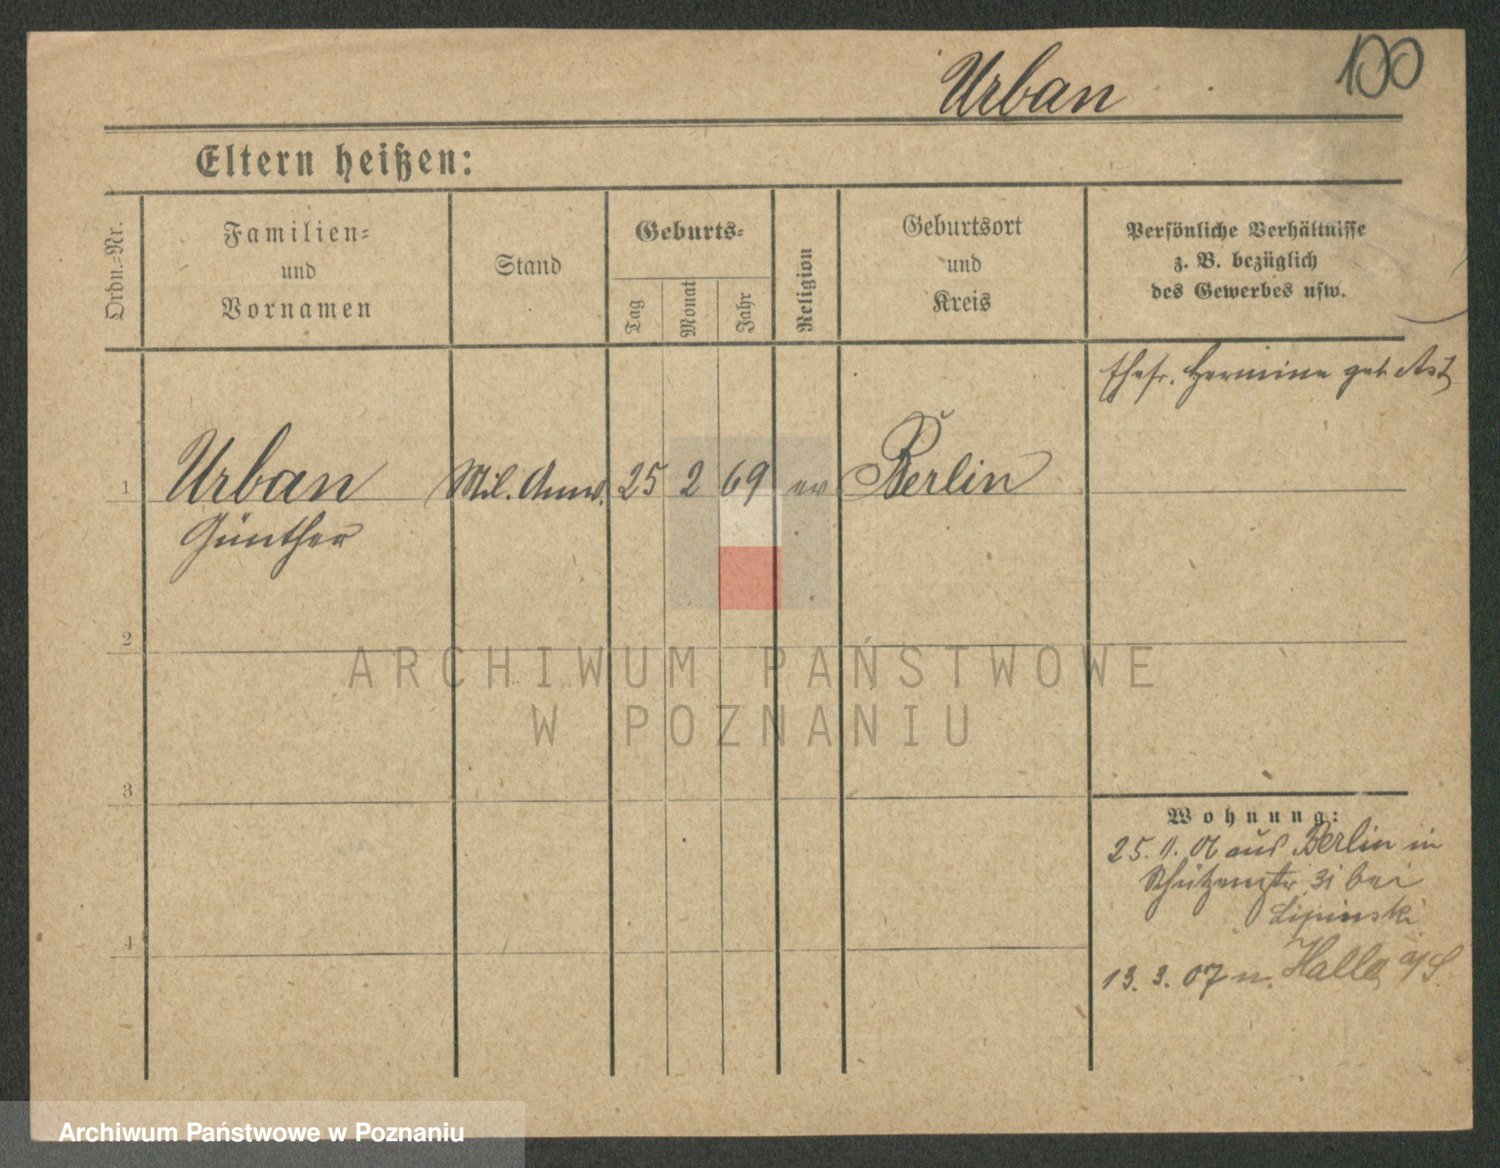 100
Urban
Eltern heißen:
Ordn.-Nr.
Familien-
und
Vornamen
Stand
Geburts-
Tag
Monat
Jahr
Religion
Geburtsort
und
Kreis
Persönliche Verhältnisse
z. B. bezüglich
des Gewerbes usw.
Ehefr. Hermine geb. Ast
1 Urban Mil. Anw. 25 2 69 ev Berlin
Günther
2
ARCHIWUM PAŃSTWOWE
W POZNANIU
3
Wohnung:
25. 1. 06 aus Berlin in
Schützenstr. 31 bei
Lipinski
4
13. 3. 07 n. Halle a/S.
Archiwum Państwowe w Poznaniu